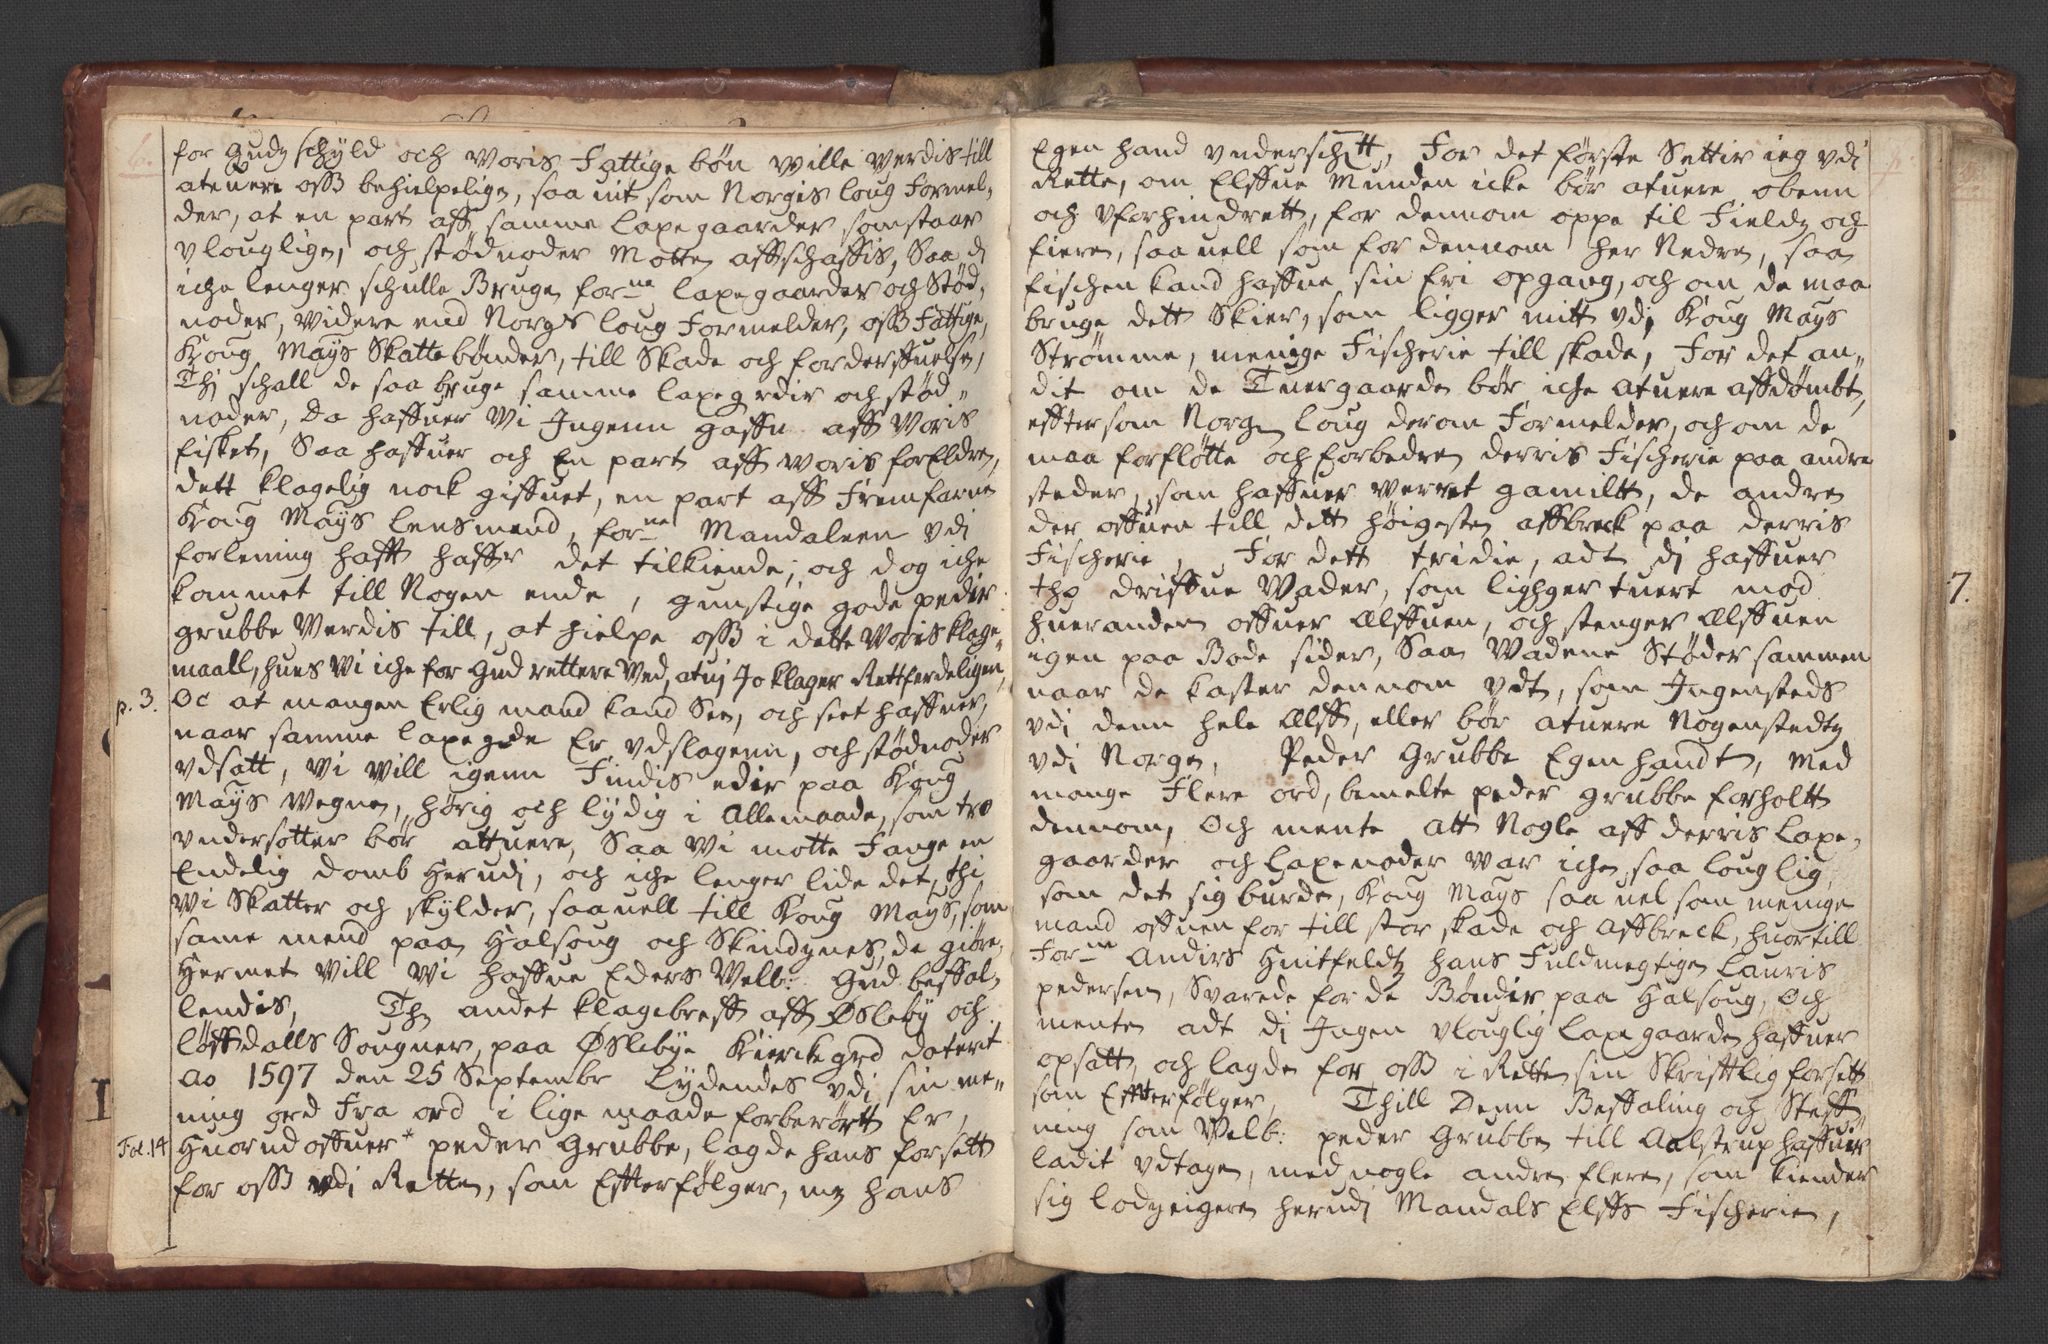 6.
for Gudz schyld och Woris Fattige bøn wille werdis till
atuere oss behielpelige, saa uit som Norgis loug formel-
der, at en part aff samme laxegaarder som staar
Vlouglige, och stødnoder Motte affschaffis, Saa di
iche lenger schulle Bruge forne laxegaarder och Stød-
noder, Videre end Norgs loug formelder, oss fattige,
Kong Mays Skattebønder, till Skade och forderffuelse,
Thi schall de saa bruge samme laxegrdir och stød-
noder, Da haffuer Wi Ingenn gaffn aff Woris
fisket, Saa haffuer och En part aff woris forEldre,
dett klagelig nock giffuet, en part aff Fremfarne
Kong Mays lensmend, forne Mandaleen Vdi
forlening hafft haffr det tilkiende, och dog iche
kommet till Nogen ende, gunstige gode peder
grubbe Werdis till, at hielpe oss i dette Woris klage-
maall, hues Wi iche for Gud rettere Wed, atuj Jo klager Rettferdeligen,
p. 3. Oc at mangen Erlig mand kand See, och seet haffuer,
naar samme laxegrde Er vdslagenn, och stødnoder
vdsatt, Wi will igenn Findis edir paa Kong
Mays Wegne, hørig och lydig i Allemaade, som tro
vndersotter bør attuere, Saa Wi motte Fange en
Endelig domb Herudi, och iche lenger lide det, thi
Wi Skatter och skylder, saauell till Kong Mays, som
same mend paa Halsoug och Skindznes, de giøre,
Hermet Will Wi haffue Eders Welb: Gud beffal-
lendis, Th andet klagebreff aff Øsleby och
løffdalls Sougner, paa Øslebye Kierckegrd daterit
Ao 1597 den 25 Septembr Lydendes vdi sin me-
ning ord fra ord i lige maade forberørtt Er,
Fol. 14 Huorudoffuer* peder Grubbe, lagde hans forsett
for oss vdi Rette, som Effterfølger, mz hans
7.
Egen hand vnderschitt, For det første Settir ieg vdi
Rette, om Elffue Munden icke bør atuere obenn
och Vforhindrett, for dennom oppe til Fieldz och
fiere, saauell som for dennom her Nedre, saa
fischen kand haffue sin fri opgang, och om de maa
bruge dett Skier, som ligger mitt vdi Kong Mays
Strømme, menige Fischerie till skade, For det an-
dit om de Tuergaarde bør iche atuere affdømbt,
efftersom Norges loug derom formelder, och om de
maa forfløtte och forbedre derris Fischerie paa andre
steder, som haffuer werret gamiltt, de andre
der offuen till dett høigeste affbreck paa derris
Fischerie, For dett tridie, adt di haffuer
thz driffue Wader, som ligger tuert mod
huerandem offuer Elffuen, och stenger Elffuen
igen paa Bode sider, Saa Wadene Støder sammen
naar de kaster dennom vdt, som Ingensteds
vdi denn hele Elff, eller bør atuere Nogenstedtz
vdi Norge, Peder Grubbe Egen handt, Med
mange Flere ord, bemelte peder grubbe forholtt
dennom, Och mente att Nogle aff derris laxe-
gaarder och laxenoder war iche saa louglig,
som det sig burde, Kong Mays saa uel som menige
mand offuenfor till stor skade och Affbreck, huortill
Forne Andirs Huitfeldtz hans fuldmegtige Lauris
pedersen, Svarede for de Bøndir paa Halsoug, och
mente adt di Ingen vlouglig laxegaarde haffuer
opsatt, och lagde for oss i Rette sin Skrifftlig forsett
som Effterfølger, Thill Denn Beffaling och Steff-
ning som Welb: peder Grubbe till Aalstrup haffuer
ladit vdtage, med nogle andre flere, som kiender
sig lodzeigere herudi Mandals Elffs Fischerie,
7.